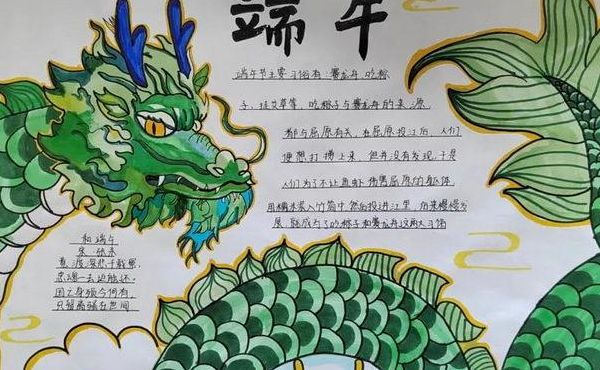 端午
端午节主要习俗有:赛龙舟、吃粽
子、挂艾草等,吃粽子与赛龙舟的来源
都与屈原有关,在屈原投江后,人们
便想打捞上来,但并没有发现,于是
人们为了不让鱼虾伤害屈原的躯体
用糯米装入竹筒中,然后投进江里,后来慢慢发
展,就成了吃粽子和赛龙舟这两大习俗
和端午
宋·张耒
竞渡深悲千载冤,
忠魂一去讵能还。
国亡身殒今何有,
只留离骚在世间